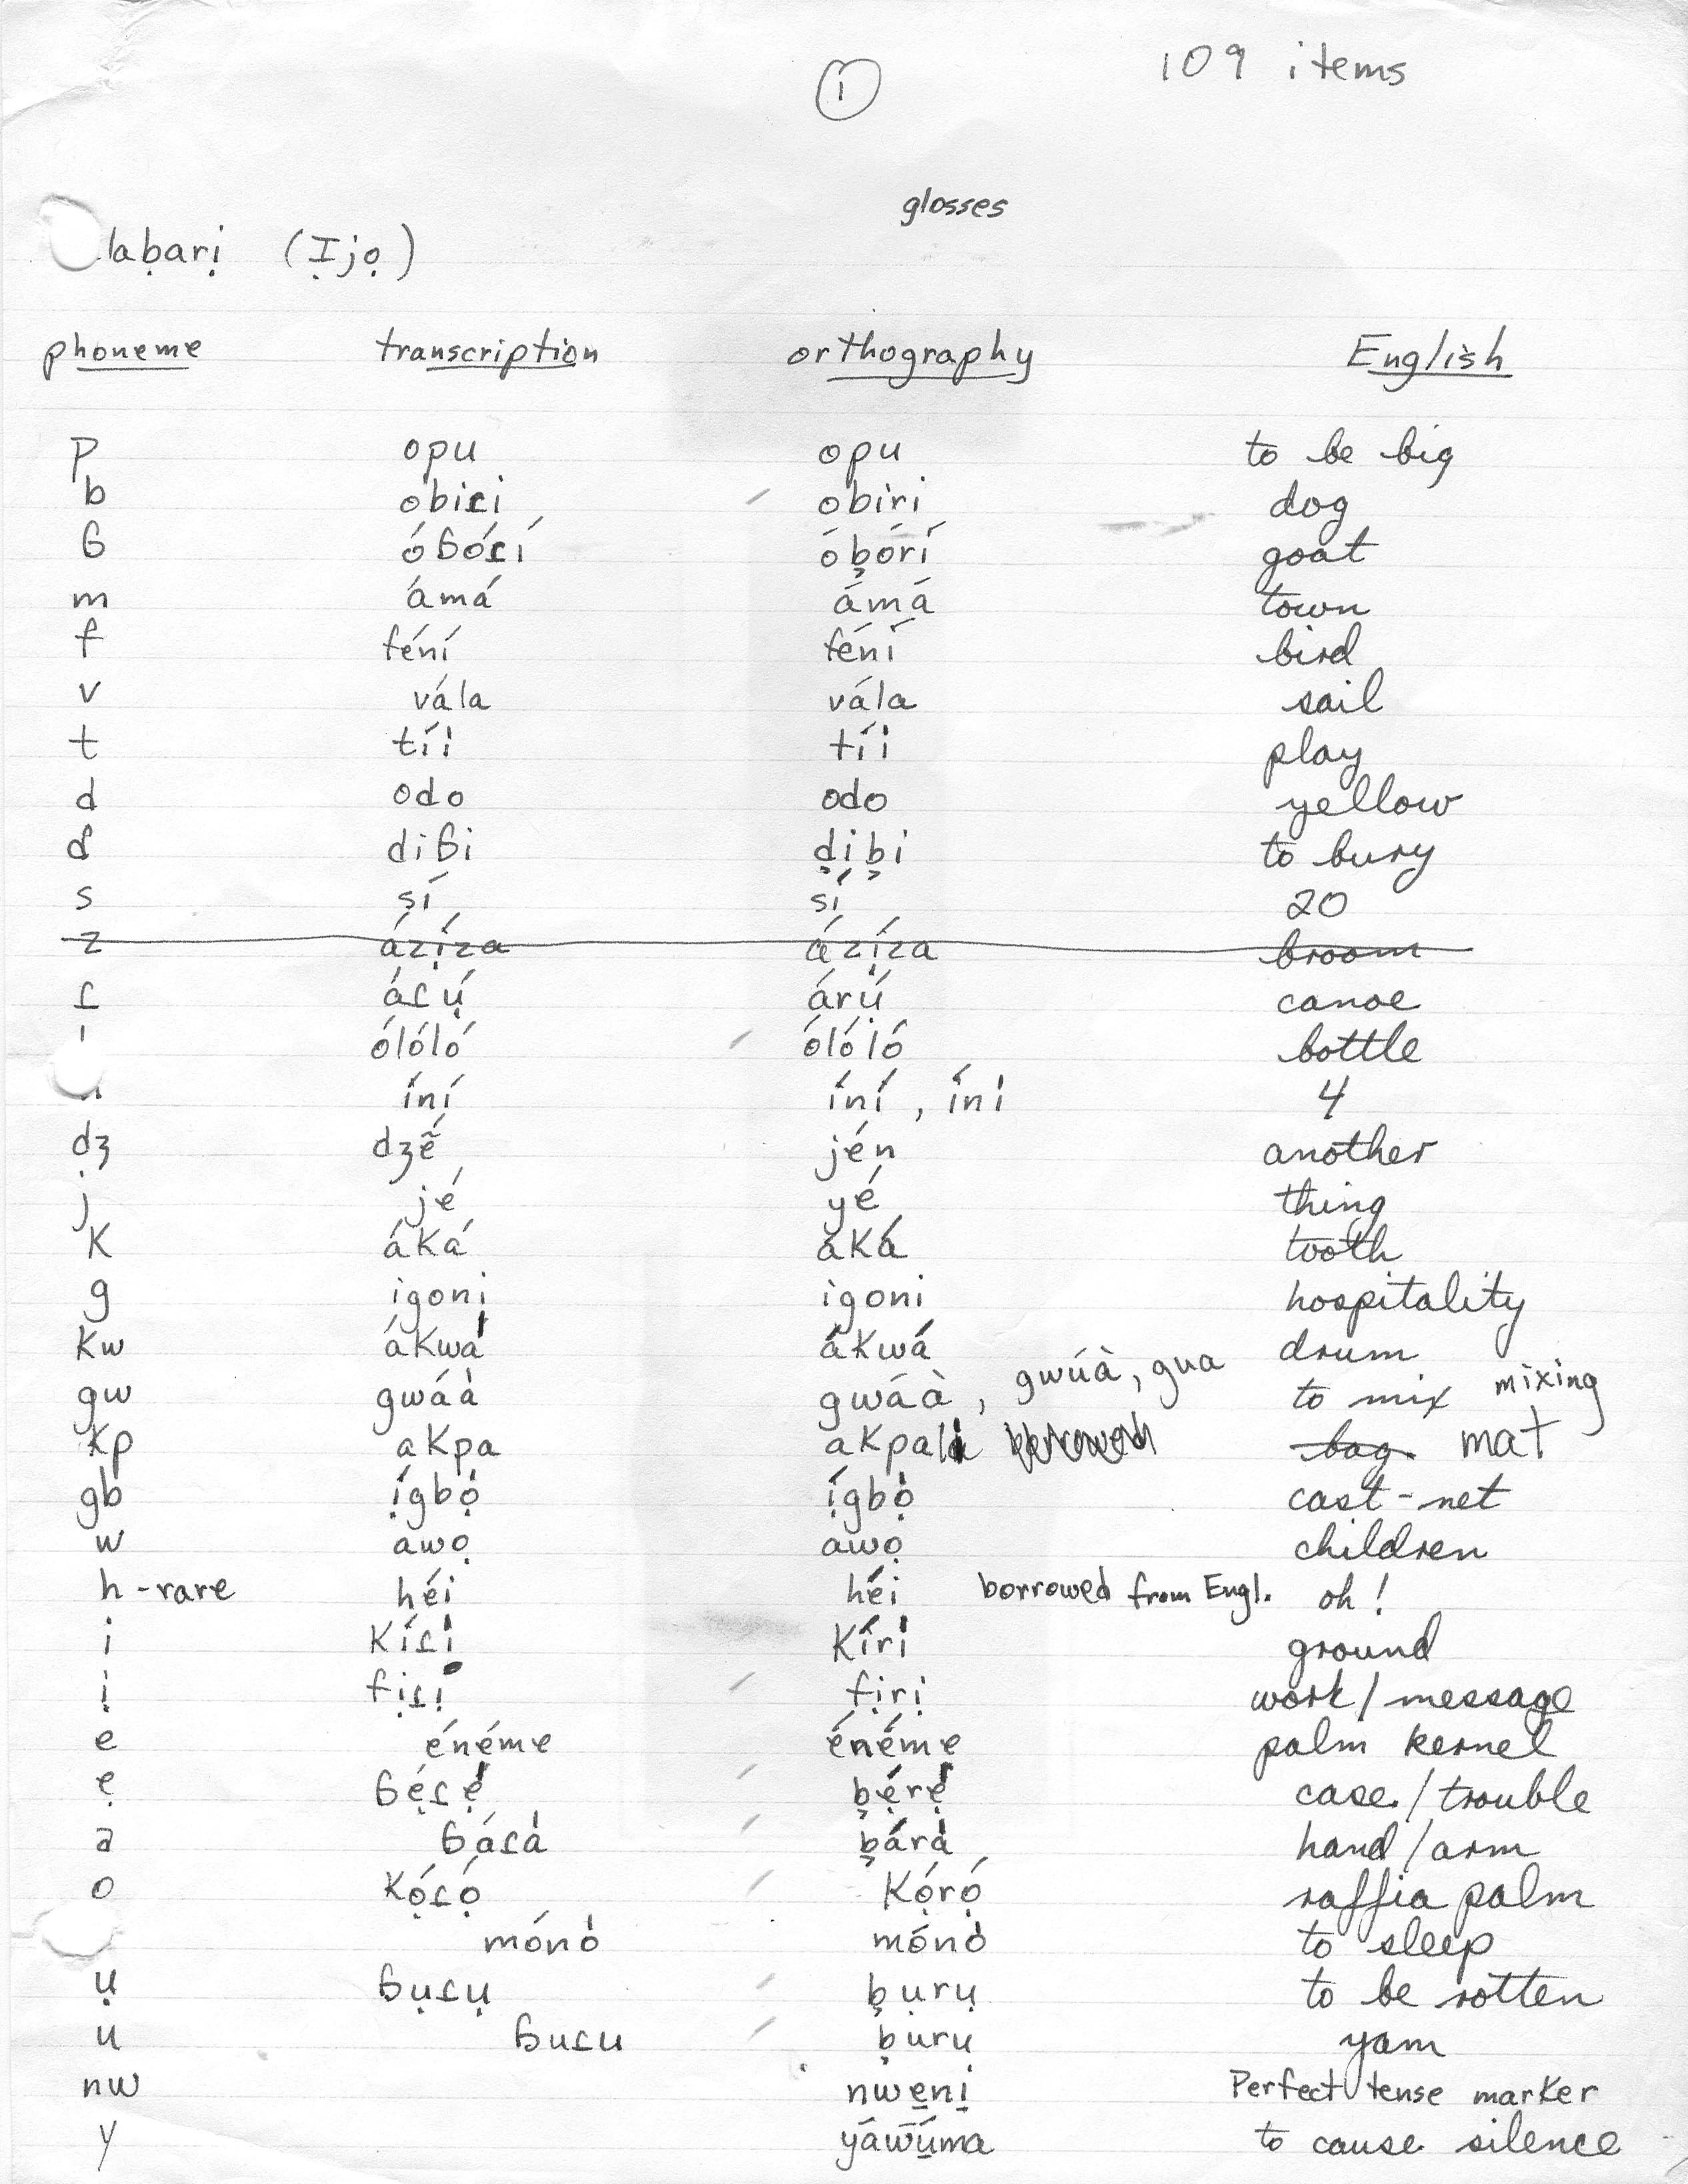 109 items
1
glosses
laḅarị (Ịjọ)
phoneme transcription orthography English
p opu opu to be big
b obiɾi obiri dog
ɓ óɓóɾí óḅórí goat
m ámá ámá town
f féní féní bird
v vála vála sail
t tíì tíì play
d odo odo yellow
ɗ diɓi ḍiḅi to bury
s sí sí 20
z ázị́za ázị́za broom
ɾ áɾụ́ árụ́ canoe
l ólóló ólóló bottle
íní íní , íni 4
dʒ dʒẽ́ jén another
j jé yé thing
k áká áká tooth
g igoni igoni hospitality
kw ákwá ákwá drum
gw gwáà gwáà , gwúà, gua to mix mixing
kp akpa akpa bag mat
gb ị́gbọ̀ ị́gbọ̀ cast-net
w awọ awọ children
h-rare héi héi borrowed from Engl. oh!
i kíɾì kírì ground
ị fịɾị fịrị work/message
e énéme énéme palm kernel
ẹ ɓẹ́ɾẹ̀ ḅẹ́rẹ̀ case/trouble
a ɓáɾà ḅárà hand/arm
o kọ́ɾọ́ kọ́rọ́ raffia palm
mónò mónò to sleep
ụ ɓụɾụ ḅụrụ to be rotten
u ɓuɾu ḅuru yam
nw nwẹnị Perfect tense marker
y yáwụ́ma to cause silence